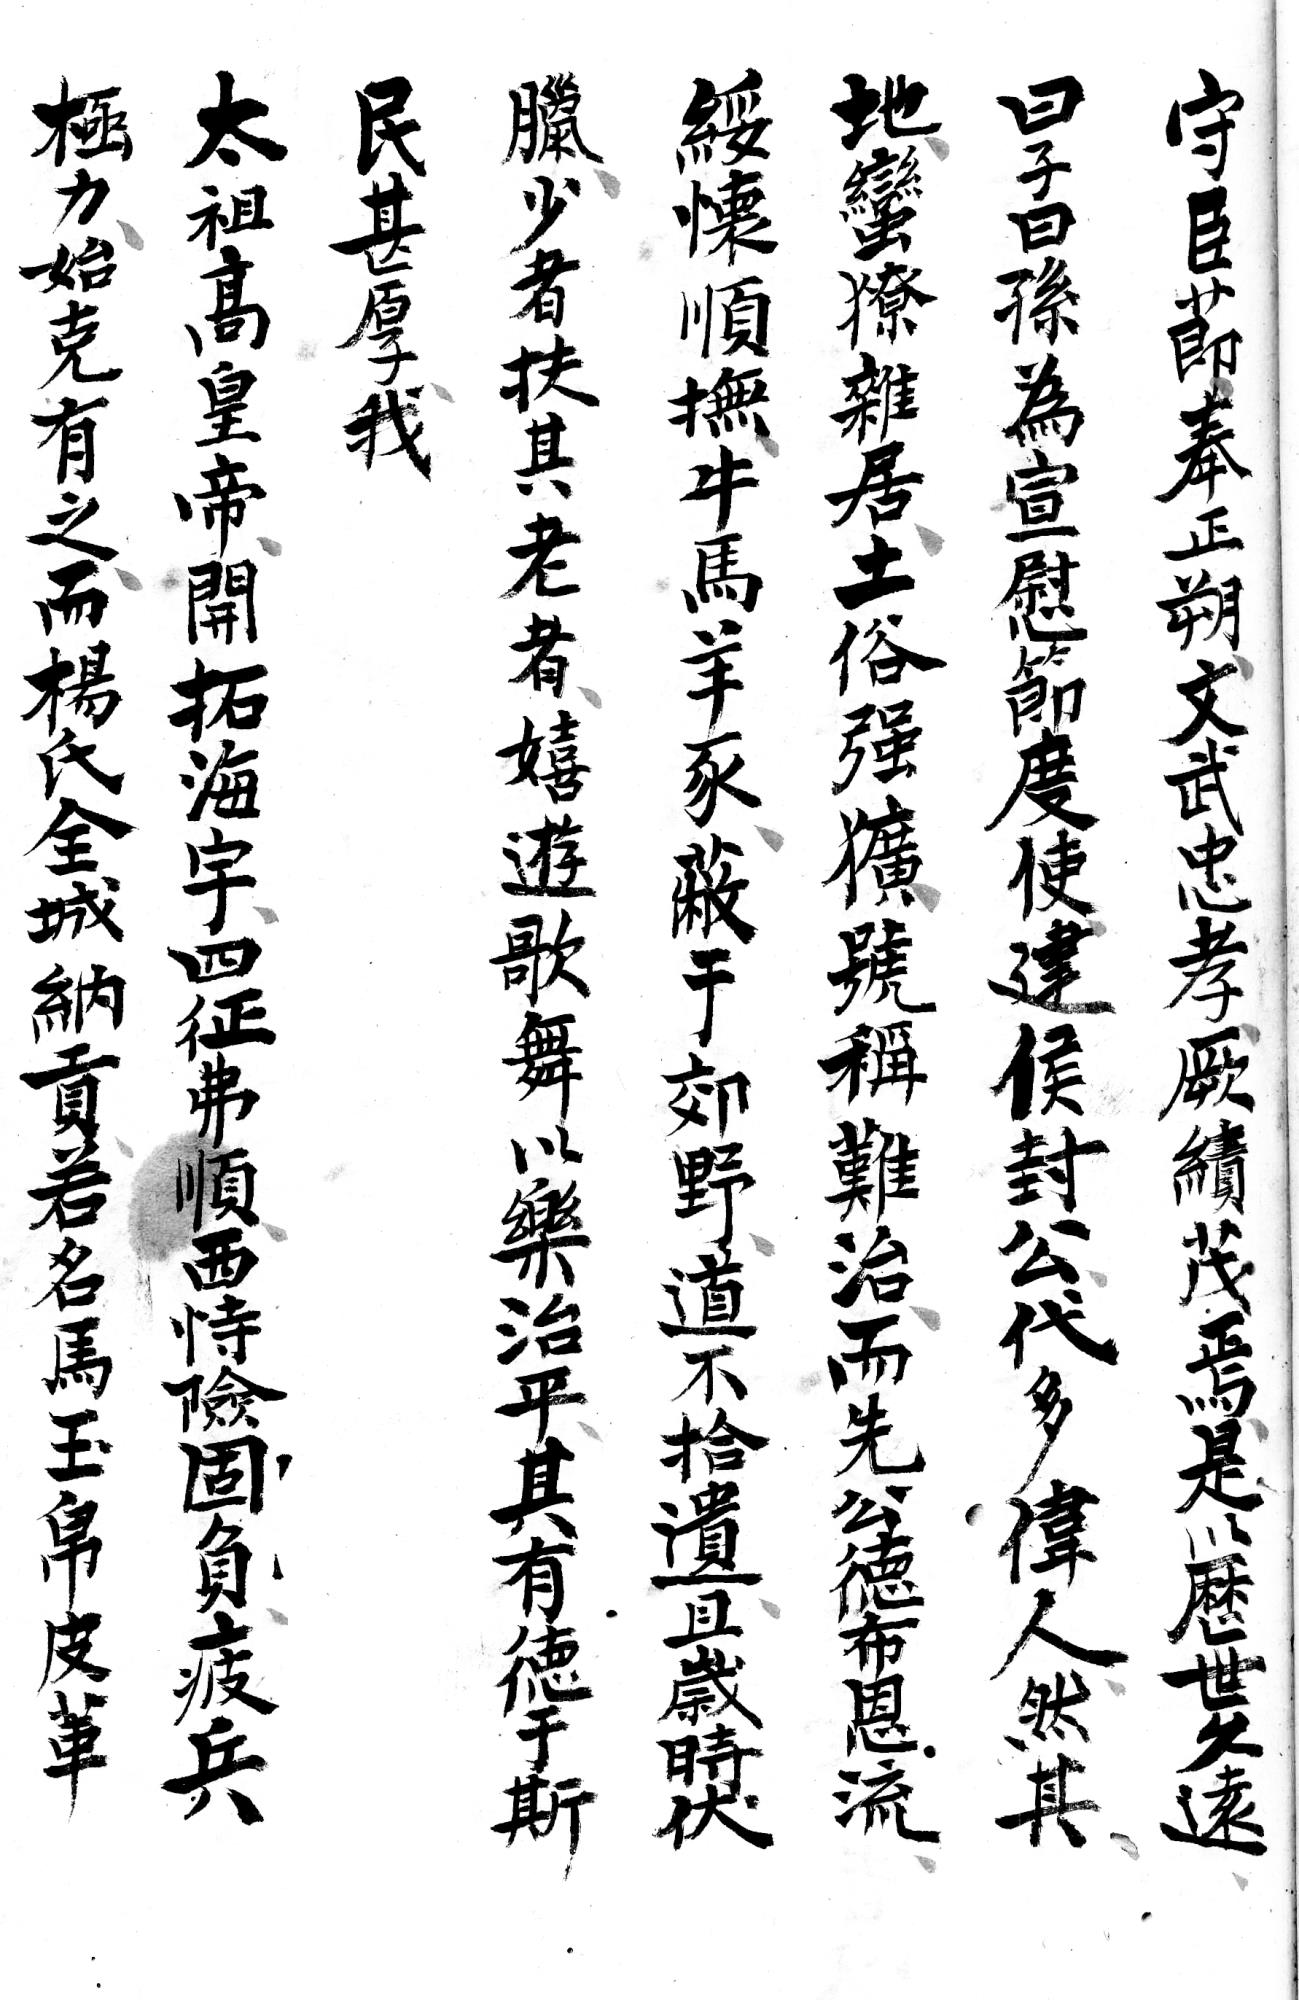 守臣莭奉正朔文武忠孝厥績茂焉是以歷世久遠
曰子曰孫為宣慰節度使建侯封公代多偉人然其
地蠻獠雜居土俗强獷號稱難治而先公德布恩流
綏懷順撫牛馬羊豕蔽于郊野道不拾遺且歲時伏
臘少者扶其老者嬉遊歌舞以樂治平其有德于斯
民甚厚我
太祖高皇帝開拓海宇四征弗順西恃險固負疲兵
極力始克有之而楊氏全城納貢若名馬玉帛皮革